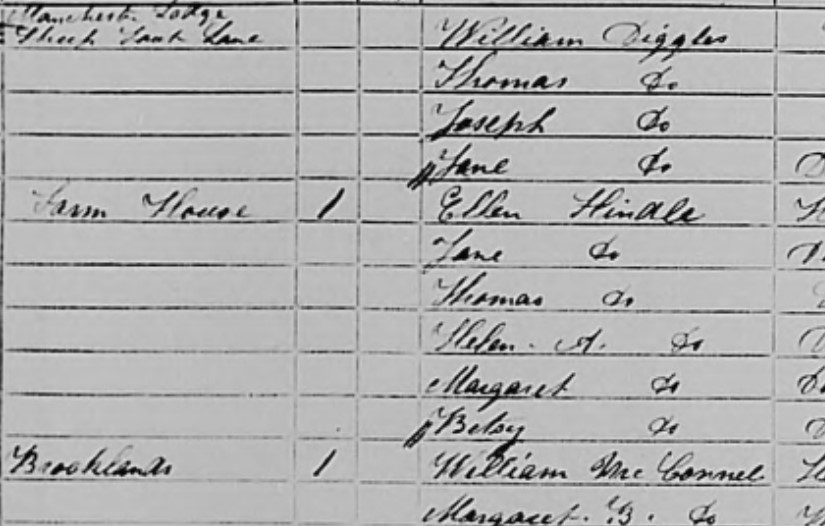 Manchester Lodge
Sheep Lane William Diggles
Thomas Do
Joseph Do
Jane Do
Farm House 1 Ellen Hindle
Jane Do
Thomas Do
Helen. A. Do
Margaret Do
Betsy Do
Brooklands 1 William Mc Connel
Margaret. B. Do